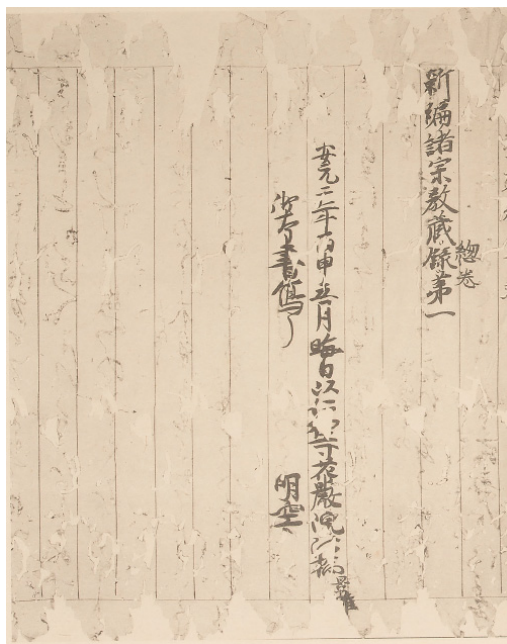 新編諸宗教藏録第一
總卷
安元二年丙申五月晦日以仁和寺花嚴院法橋景雅
御本書寫了 明空